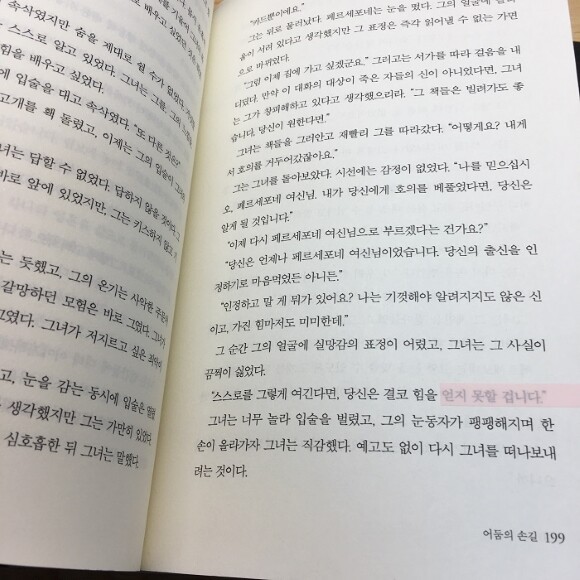 속삭였지만 숨을 제대로 쉴 수가 없었다.
스스로 알고 있었다. 그녀는 그를,
힘을 배우고 싶었다.
입술을 대고 속삭였다. "또 다른
고개를 홱 돌렸고, 이제는 그의 입술이
녀는 답할 수 없었다. 답하지 않을 것이다.
바로 앞에 있었지만, 그는 키스하지 않고
는 듯했고, 그의 온기는 사악한
갈망하던 모험은 바로 그였다. 그가
그였다. 그녀가 저지르고 싶은
고, 눈을 감는 동시에 입술은
생각했지만 그는 가만히 있었다.
심호흡한 뒤 그녀는 말했다.
"카드뿐이에요."
그는 뒤로 물러났다. 페르세포네는 눈을 떴다. 그의 얼굴에
움이 서려 있다고 생각했지만 그 표정은 즉각 읽어낼 수 없는 가면
으로 바뀌었다.
"그럼 이제 집에 가고 싶겠군요." 그러고는 서가를 따라 걸음을 내
디뎠다. 만약 이 대화의 대상이 죽은 자들의 신이 아니었다면, 그녀
는 그가 창피해하고 있다고 생각했으리라. "그 책들은 빌려가도 좋
습니다, 당신이 원한다면."
그녀는 책들을 그러안고 재빨리 그를 따라갔다. "어떻게요? 내게
서 호의를 거두어갔잖아요."
그는 그녀를 돌아보았다. 시선에는 감정이 없었다. "나를 믿으십시
오, 페르세포네 여신님. 내가 당신에게 호의를 베풀었다면, 당신은
알게 될 것입니다."
"이제 다시 페르세포네 여신님으로 부르겠다는 건가요?"
"당신은 언제나 페르세포네 여신님이었습니다. 당신의 출신을 인
정하기로 마음먹었든 아니든."
"인정하고 말 게 뭐가 있어요? 나는 기껏해야 알려지지도 않은 신
이고, 가진 힘마저도 미미한데."
그 순간 그의 얼굴에 실망감의 표정이 어렸고, 그녀는 그 사실이
끔찍이 싫었다.
"스스로를 그렇게 여긴다면, 당신은 결코 힘을 얻지 못할 겁니다."
그녀는 너무 놀라 입술을 벌렸고, 그의 눈동자가 팽팽해지며 한
손이 올라가자 그녀는 직감했다. 예고도 없이 다시 그녀를 떠나보내
려는 것이다.
어둠의 손길 199